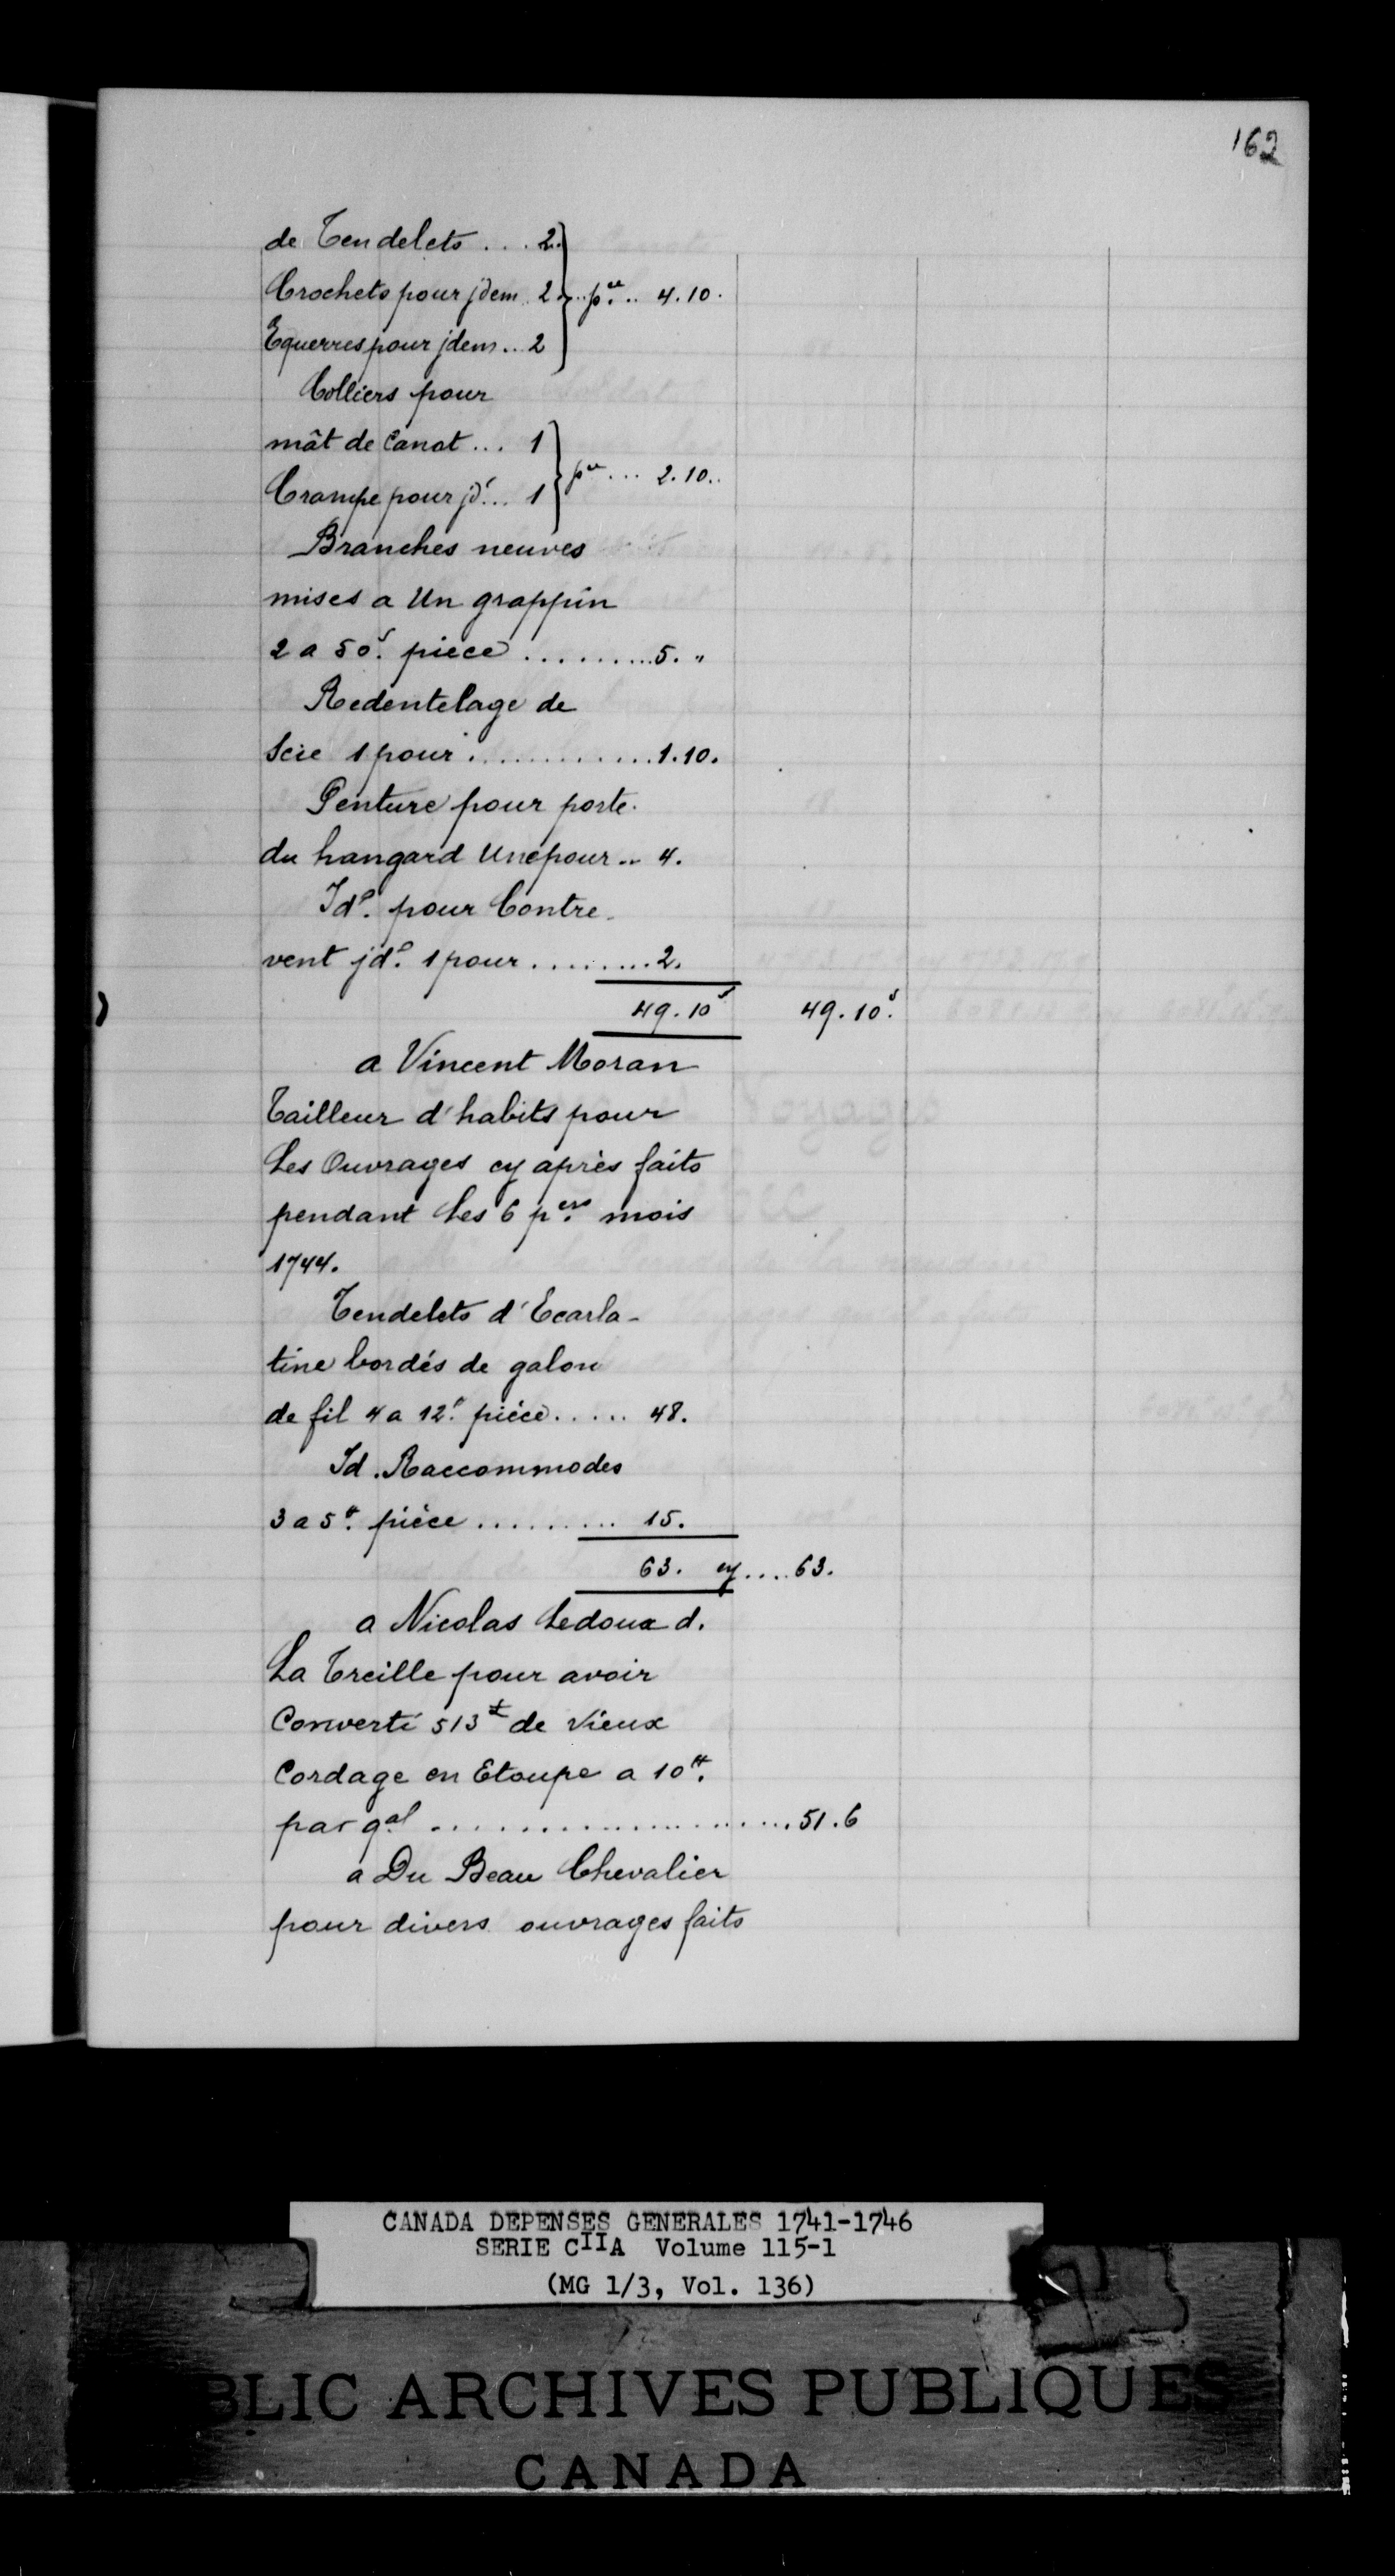 162
de Tendelets . . . 2.
Crochets pour jdem . 2 . . . pr. . . 4.10.
Equerres pour jdem . . 2
Colliers pour
mât de Canot . . . 1
pr . . . 2.10..
Crampe pour jd. . . 1
Branches neuves
mises a Un grappin
2 a 50s. piece . . . . . . . . . 5. "
Redentelage de
Scie 1 pour . . . . . . . . . . . . 1.10.
Penture pour porte.
du hangard Une pour . . 4.
Ido. pour Contre-
vent jdo. 1 pour . . . . . . . . . 2.
49.10s 49.10s.
a Vincent Moran
Tailleur d'habits pour
Les Ouvrages cy après faits
pendant Les 6 pers. mois
1744.
Tendelets d'Ecarla-
tine bordés de galon
de fil 4 a 12#. piéce . . . . . 48.
Id. Raccommodes
3 a 5#. piéce . . . . . . . . . 15.
63. cy . . . . 63.
a Nicolas Ledoux d.
La Treille pour avoir
Converti 513# de Vieux
Cordage en Etoupe a 10#.
par qal . . . . . . . . . . . . . . . . . . . . 51.6
a Du Beau Chevalier
pour divers ouvrages faits
CANADA DEPENSES GENERALES 1741-1746
SERIE CIIA Volume 115-1
(MG 1/3, Vol. 136)
BLIC ARCHIVES PUBLIQUES
CANADA